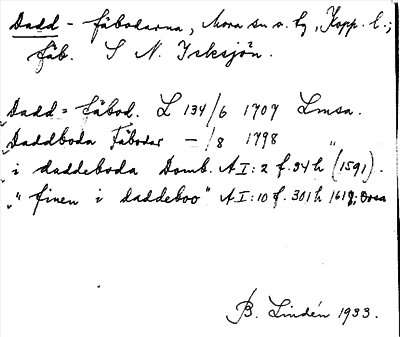 Dadd - fäbodarna, Mora sn o. by, Kopp. l.;
fäb. S N. Isksjön.
Dadd = fäbod. L 134/6 1707 Lmsa.
"Daddboda Fäbodar - /8 1798
"i daddeboda Domb. A I: 2 f. 34 h (1591).
"" finen i daddeboo" A I: 10 f. 301 h 1619; Orsa
B. Lindén 1933.